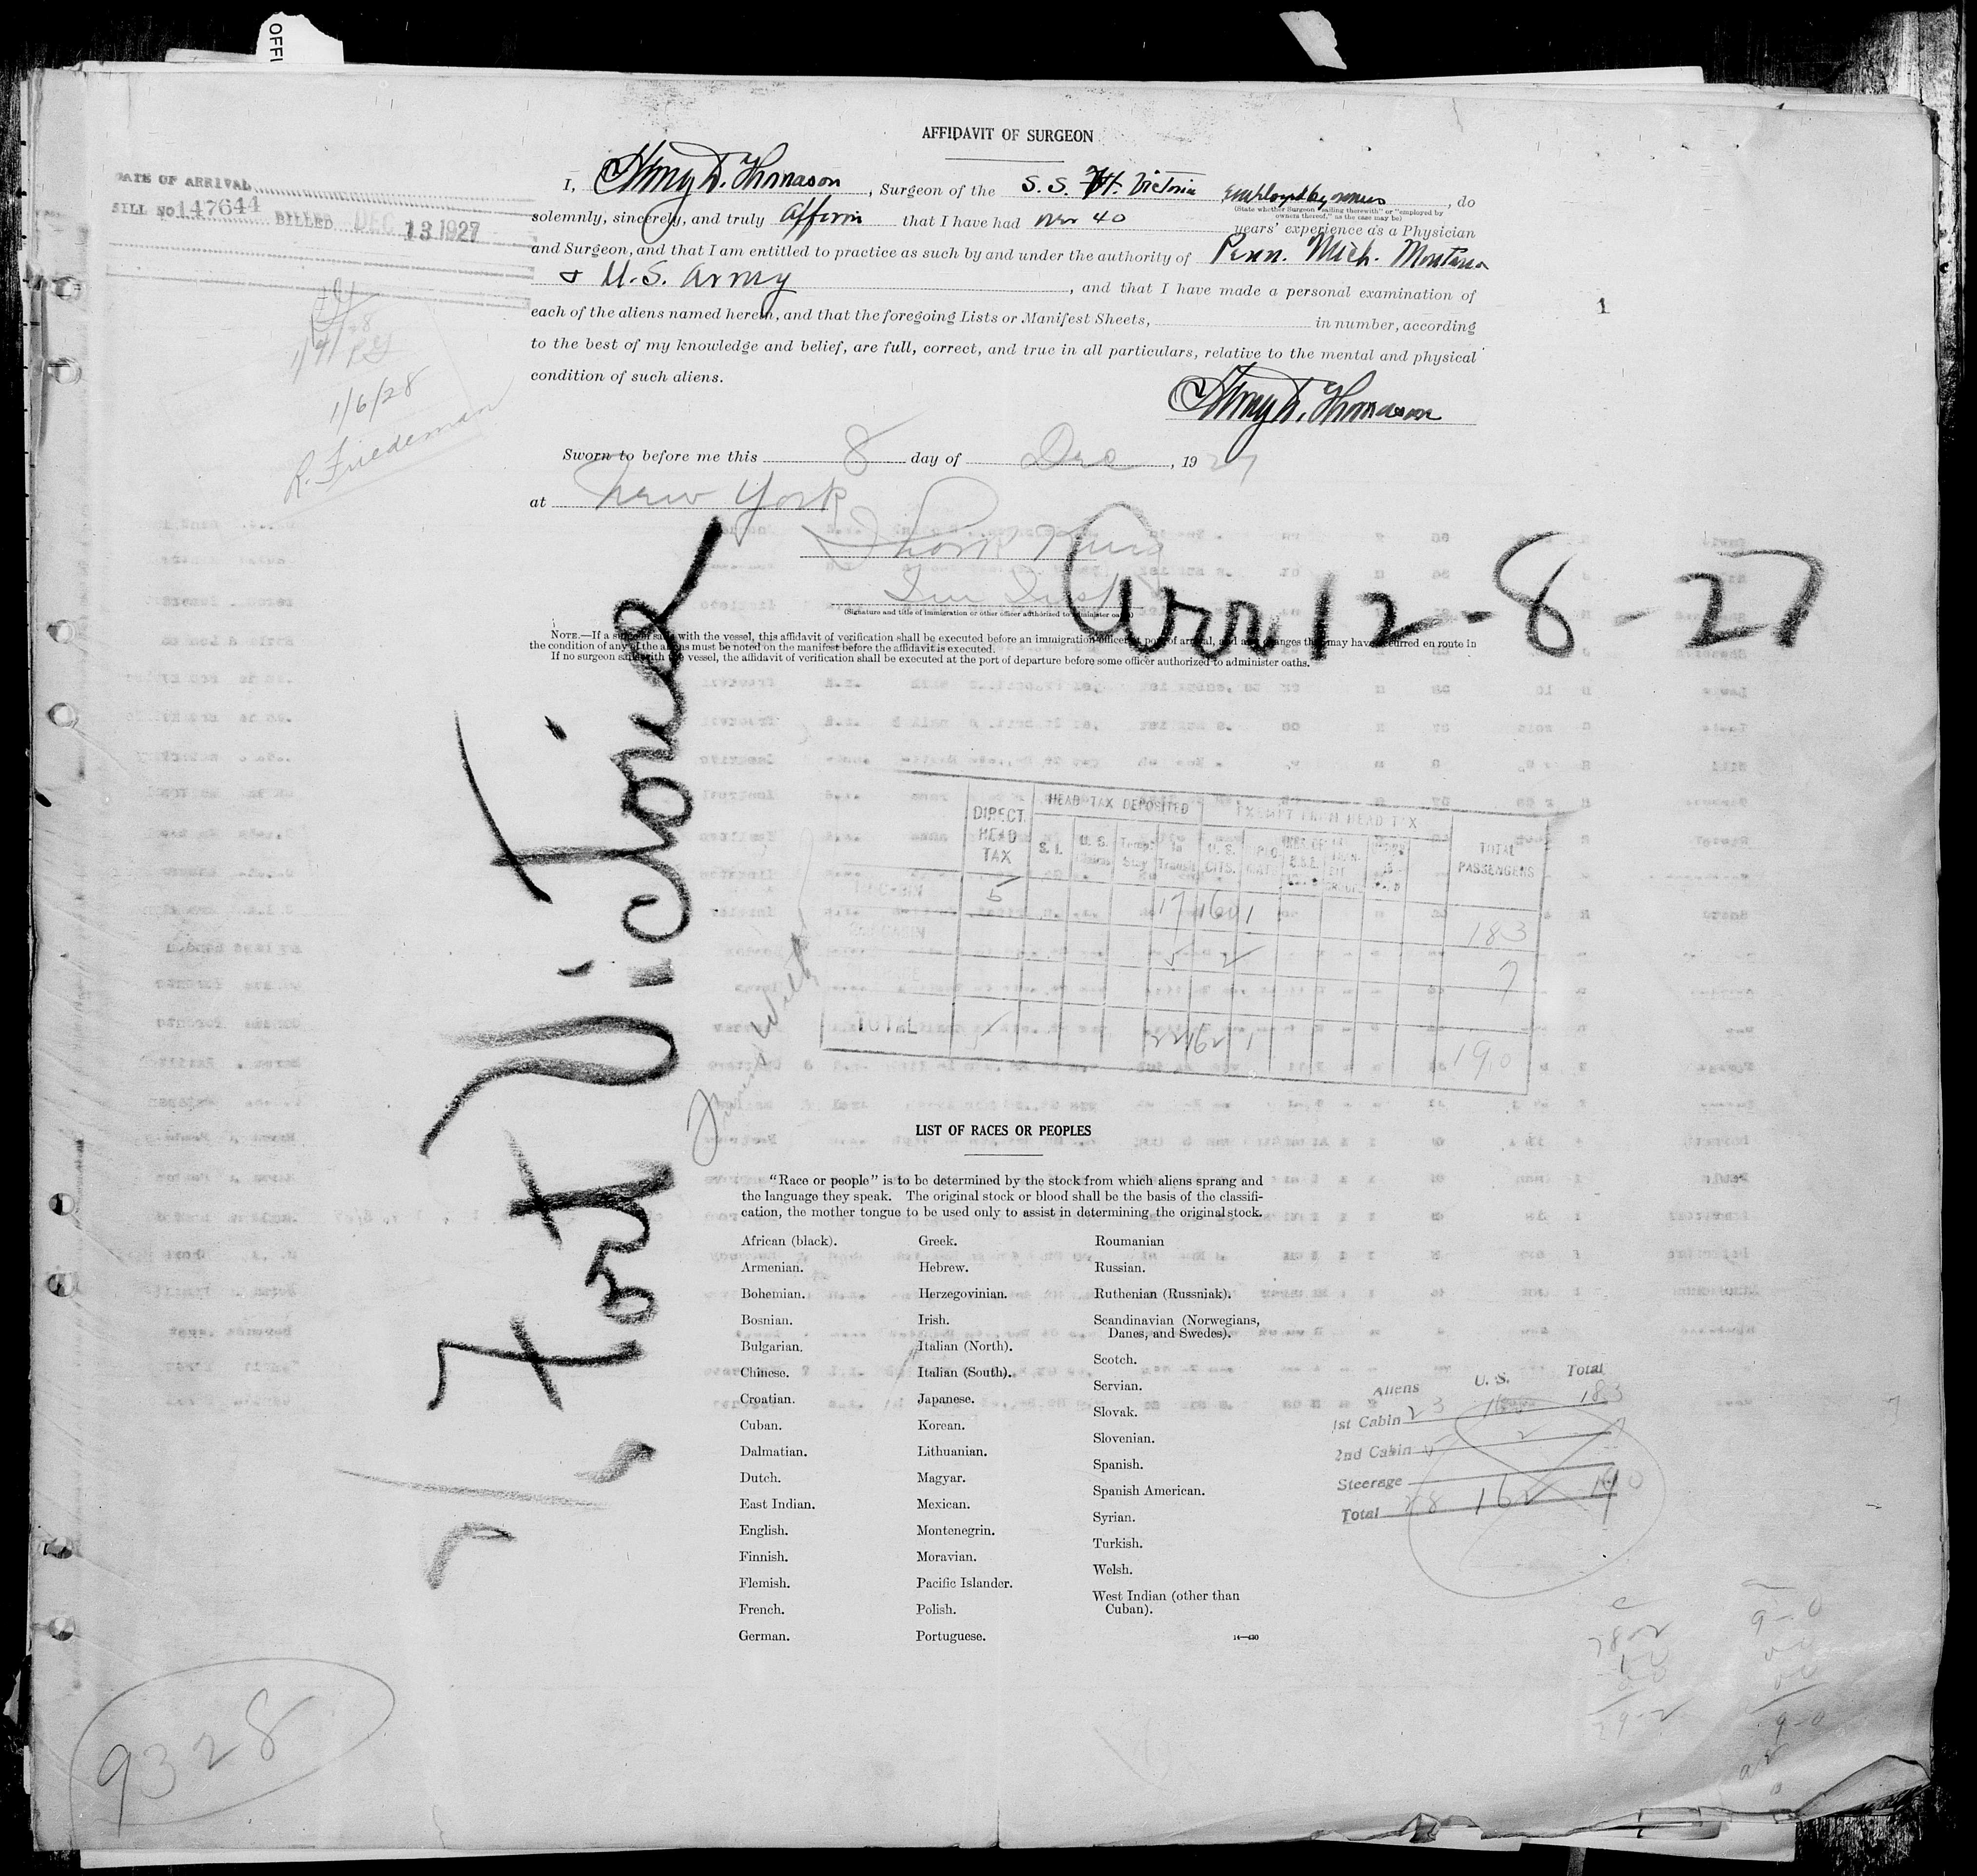 OFFI
AFFIDAVIT OF SURGEON
DATE OF ARRIVAL
BILL NO 147644 BILLED DEC 13 1927
I, Henry D. Thomason, Surgeon of the S. S. Ft. Victoria employed by owners, do
(State whether Surgeon "sailing therewith" or "employed by
owners thereof," as the case may be)
solemnly, sincerely, and truly affirm that I have had over 40 years' experience as a Physician
and Surgeon, and that I am entitled to practice as such by and under the authority of Penn. Mich. Montana
& U.S. Army, and that I have made a personal examination of
each of the aliens named herein, and that the foregoing Lists or Manifest Sheets, in number, according
to the best of my knowledge and belief, are full, correct, and true in all particulars, relative to the mental and physical
condition of such aliens.
1
Henry D. Thomason
1/6/28
R. Friedeman
Sworn to before me this 8 day of Dec, 1927
at New York
(Signature and title of immigration or other officer authorized to administer oaths)
Arr 12-8-27
NOTE.—If a surgeon sails with the vessel, this affidavit of verification shall be executed before an immigration officer at port of arrival, and any changes that may have occurred en route in
the condition of any of the aliens must be noted on the manifest before the affidavit is executed.
If no surgeon sails with the vessel, the affidavit of verification shall be executed at the port of departure before some officer authorized to administer oaths.
Fort Victoria
DIRECT HEAD TAX
HEAD TAX DEPOSITED
EXEMPT FROM HEAD TAX
S. I.
U. S.
Temp. Stay
In Transit
U. S. CITS.
TOTAL PASSENGERS
1st CABIN 5 17 160 1 183
2nd CABIN 5 2 7
TOTAL 5 22 162 1 190
LIST OF RACES OR PEOPLES
"Race or people" is to be determined by the stock from which aliens sprang and
the language they speak. The original stock or blood shall be the basis of the classifi-
cation, the mother tongue to be used only to assist in determining the original stock.
African (black).
Armenian.
Bohemian.
Bosnian.
Bulgarian.
Chinese.
Croatian.
Cuban.
Dalmatian.
Dutch.
East Indian.
English.
Finnish.
Flemish.
French.
German.
Greek.
Hebrew.
Herzegovinian.
Irish.
Italian (North).
Italian (South).
Japanese.
Korean.
Lithuanian.
Magyar.
Mexican.
Montenegrin.
Moravian.
Pacific Islander.
Polish.
Portuguese.
Roumanian
Russian.
Ruthenian (Russniak).
Scandinavian (Norwegians,
Danes, and Swedes).
Scotch.
Servian.
Slovak.
Slovenian.
Spanish.
Spanish American.
Syrian.
Turkish.
Welsh.
West Indian (other than
Cuban).
14—430
Aliens U. S. Total
1st Cabin 23 160 183
2nd Cabin 5 2
Steerage
Total 28 162 190
9328